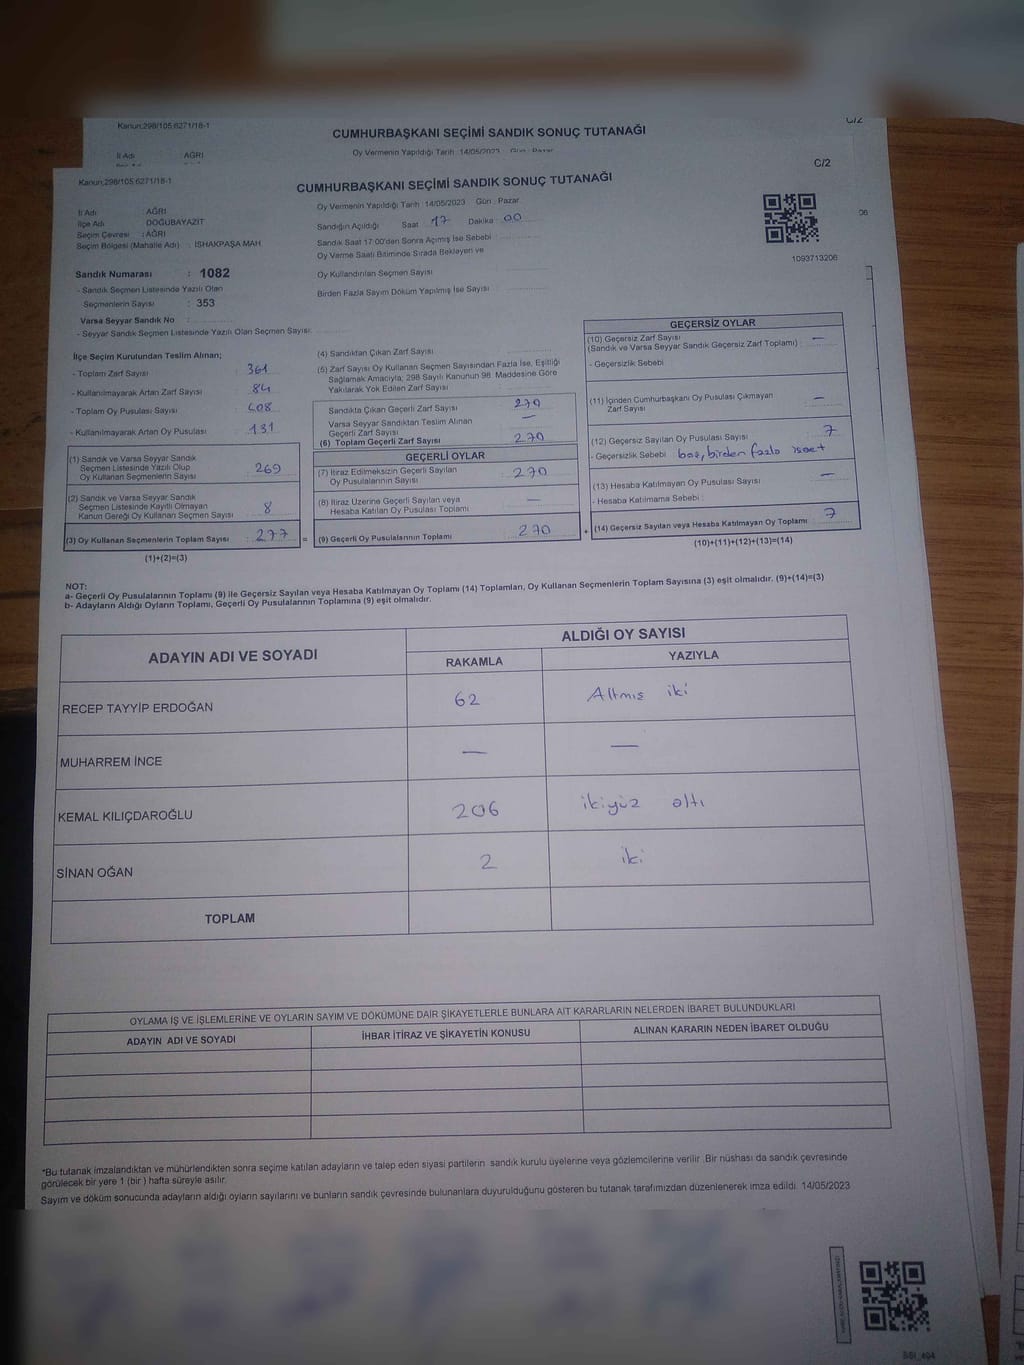 Kanun:298/105,6271/18-1
CUMHURBAŞKANI SEÇİMİ SANDIK SONUÇ TUTANAĞI
İl Adı AĞRI
Oy Vermenin Yapıldığı Tarih :14/05/2023 Gün : Pazar
C/2
Kanun:298/105,6271/18-1
CUMHURBAŞKANI SEÇİMİ SANDIK SONUÇ TUTANAĞI
C/2
İl Adı : AĞRI
İlçe Adı : DOĞUBAYAZIT
Seçim Çevresi : AĞRI
Seçim Bölgesi (Mahalle Adı) : İSHAKPAŞA MAH
Oy Vermenin Yapıldığı Tarih :14/05/2023 Gün : Pazar
Sandığın Açıldığı Saat 17 Dakika : 00
Sandık Saat 17:00'den Sonra Açılmış İse Sebebi
Oy Verme Saati Bitiminde Sırada Bekleyen ve
Oy Kullandırılan Seçmen Sayısı
Birden Fazla Sayım Döküm Yapılmış İse Sayısı
1093713206
06
Sandık Numarası : 1082
- Sandık Seçmen Listesinde Yazılı Olan
Seçmenlerin Sayısı : 353
Varsa Seyyar Sandık No :
- Seyyar Sandık Seçmen Listesinde Yazılı Olan Seçmen Sayısı:
İlçe Seçim Kurulundan Teslim Alınan;
- Toplam Zarf Sayısı : 361
- Kullanılmayarak Artan Zarf Sayısı : 84
- Toplam Oy Pusulası Sayısı : 408
- Kullanılmayarak Artan Oy Pusulası : 131
(1) Sandık ve Varsa Seyyar Sandık
Seçmen Listesinde Yazılı Olup
Oy Kullanan Seçmenlerin Sayısı 269
(2) Sandık ve Varsa Seyyar Sandık
Seçmen Listesinde Kayıtlı Olmayan
Kanun Gereği Oy Kullanan Seçmen Sayısı 8
(3) Oy Kullanan Seçmenlerin Toplam Sayısı : 277 =
(1)+(2)=(3)
(4) Sandıktan Çıkan Zarf Sayısı
(5) Zarf Sayısı Oy Kullanan Seçmen Sayısından Fazla İse, Eşitliği
Sağlamak Amacıyla; 298 Sayılı Kanunun 98. Maddesine Göre
Yakılarak Yok Edilen Zarf Sayısı
Sandıkta Çıkan Geçerli Zarf Sayısı 270
Varsa Seyyar Sandıktan Teslim Alınan
Geçerli Zarf Sayısı —
(6) Toplam Geçerli Zarf Sayısı 270
GEÇERLİ OYLAR
(7) İtiraz Edilmeksizin Geçerli Sayılan
Oy Pusulalarının Sayısı : 270
(8) İtiraz Üzerine Geçerli Sayılan veya
Hesaba Katılan Oy Pusulası Toplamı —
(9) Geçerli Oy Pusulalarının Toplamı : 270 +
GEÇERSİZ OYLAR
(10) Geçersiz Zarf Sayısı
(Sandık ve Varsa Seyyar Sandık Geçersiz Zarf Toplamı) : —
- Geçersizlik Sebebi
(11) İçinden Cumhurbaşkanı Oy Pusulası Çıkmayan
Zarf Sayısı —
(12) Geçersiz Sayılan Oy Pusulası Sayısı 7
- Geçersizlik Sebebi boş, birden fazla
(13) Hesaba Katılmayan Oy Pusulası Sayısı —
- Hesaba Katılmama Sebebi :
(14) Geçersiz Sayılan veya Hesaba Katılmayan Oy Toplamı : 7
(10)+(11)+(12)+(13)=(14)
NOT:
a- Geçerli Oy Pusulalarının Toplamı (9) ile Geçersiz Sayılan veya Hesaba Katılmayan Oy Toplamı (14) Toplamları, Oy Kullanan Seçmenlerin Toplam Sayısına (3) eşit olmalıdır. (9)+(14)=(3)
b- Adayların Aldığı Oyların Toplamı, Geçerli Oy Pusulalarının Toplamına (9) eşit olmalıdır.
ADAYIN ADI VE SOYADI
ALDIĞI OY SAYISI
RAKAMLA YAZIYLA
RECEP TAYYİP ERDOĞAN 62 Altmış iki
MUHARREM İNCE — —
KEMAL KILIÇDAROĞLU 206 ikiyüz altı
SİNAN OĞAN 2 iki
TOPLAM
OYLAMA İŞ VE İŞLEMLERİNE VE OYLARIN SAYIM VE DÖKÜMÜNE DAİR ŞİKAYETLERLE BUNLARA AİT KARARLARIN NELERDEN İBARET BULUNDUKLARI
ADAYIN ADI VE SOYADI İHBAR İTİRAZ VE ŞİKAYETİN KONUSU ALINAN KARARIN NEDEN İBARET OLDUĞU
*Bu tutanak imzalandıktan ve mühürlendikten sonra seçime katılan adayların ve talep eden siyasi partilerin sandık kurulu üyelerine veya gözlemcilerine verilir .Bir nüshası da sandık çevresinde
görülecek bir yere 1 (bir ) hafta süreyle asılır.
Sayım ve döküm sonucunda adayların aldığı oyların sayılarını ve bunların sandık çevresinde bulunanlara duyurulduğunu gösteren bu tutanak tarafımızdan düzenlenerek imza edildi. 14/05/2023